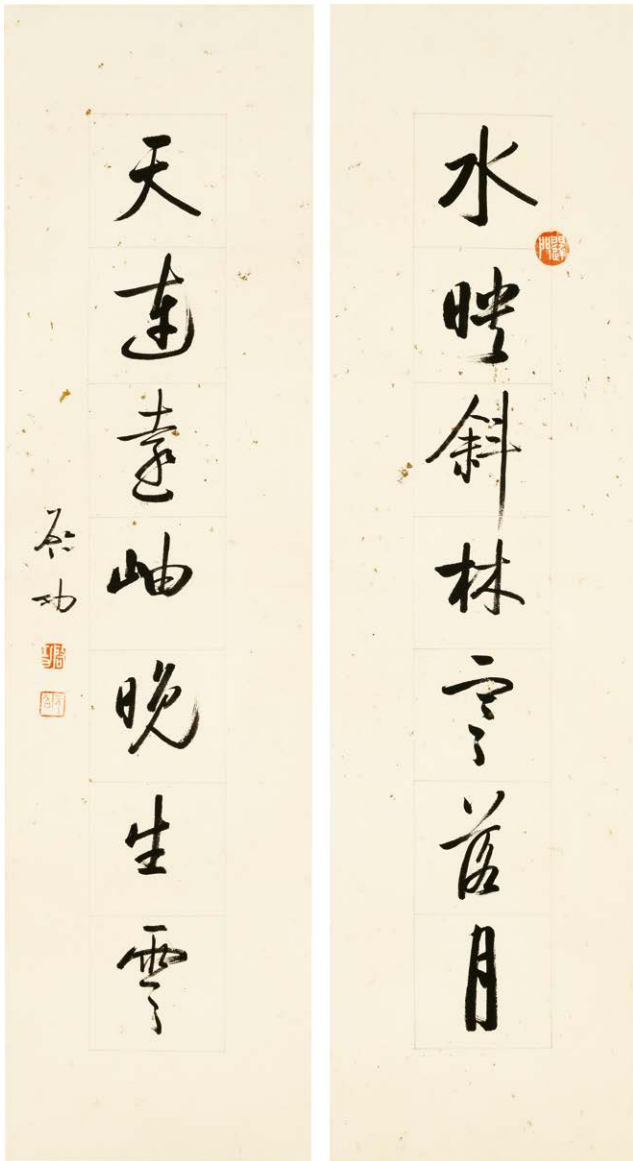 水映斜林零落月
天連遠岫晚生雲
啓功